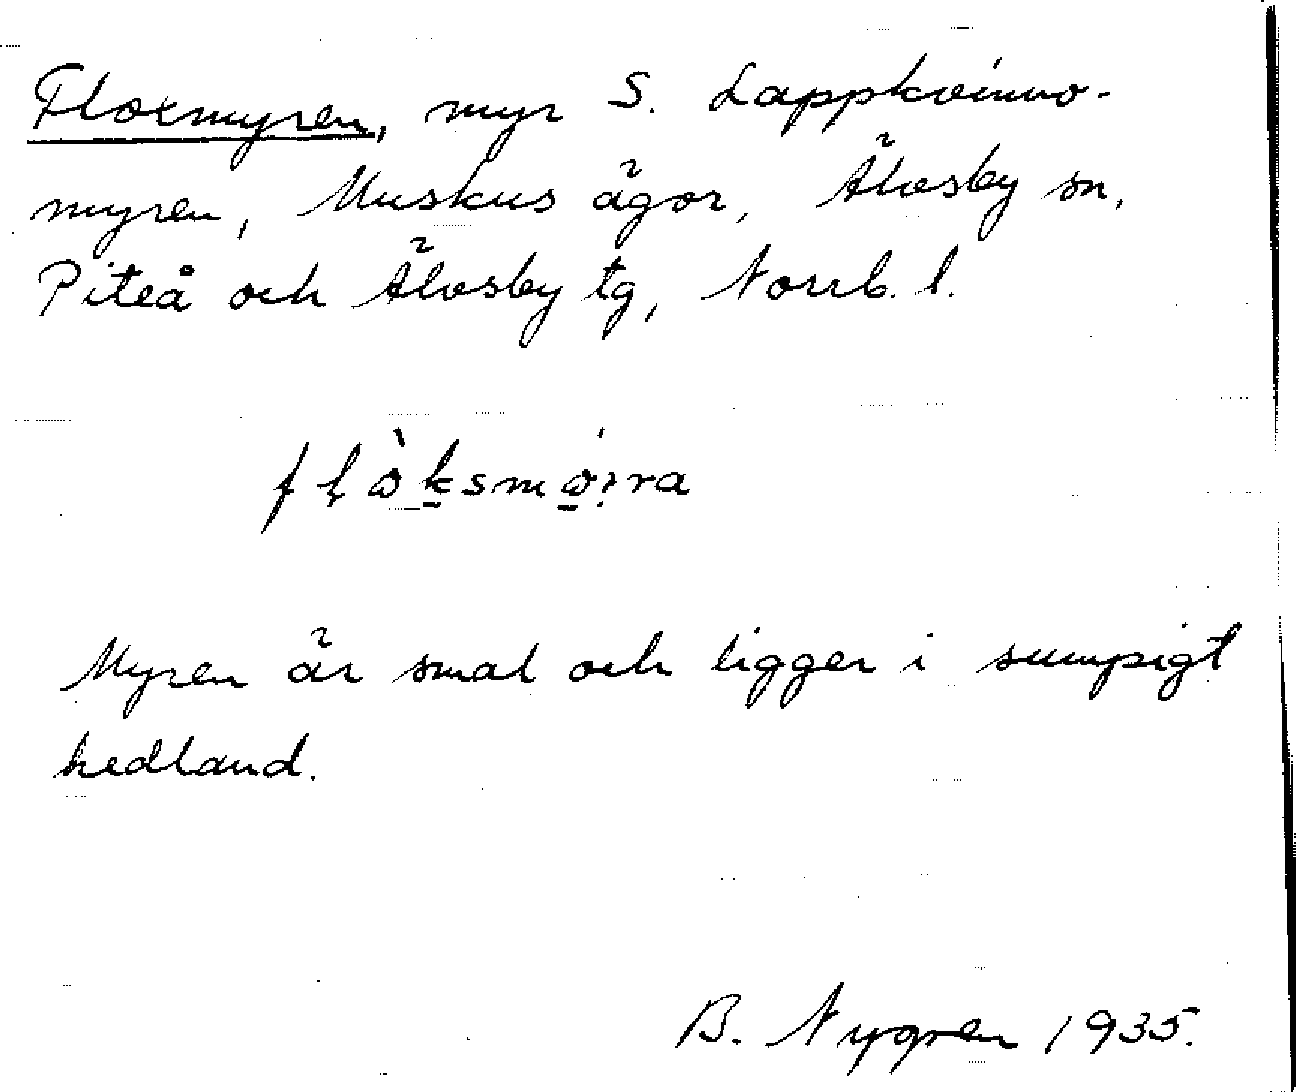 Floxmyren, myr S. Lappkvinno-
myren, Muskus ägor, Älvsby sn,
Piteå och Älvsby tg, Norrb. l.
Myren är smal och ligger i sumpigt
hedland.
B. Nygren 1935.